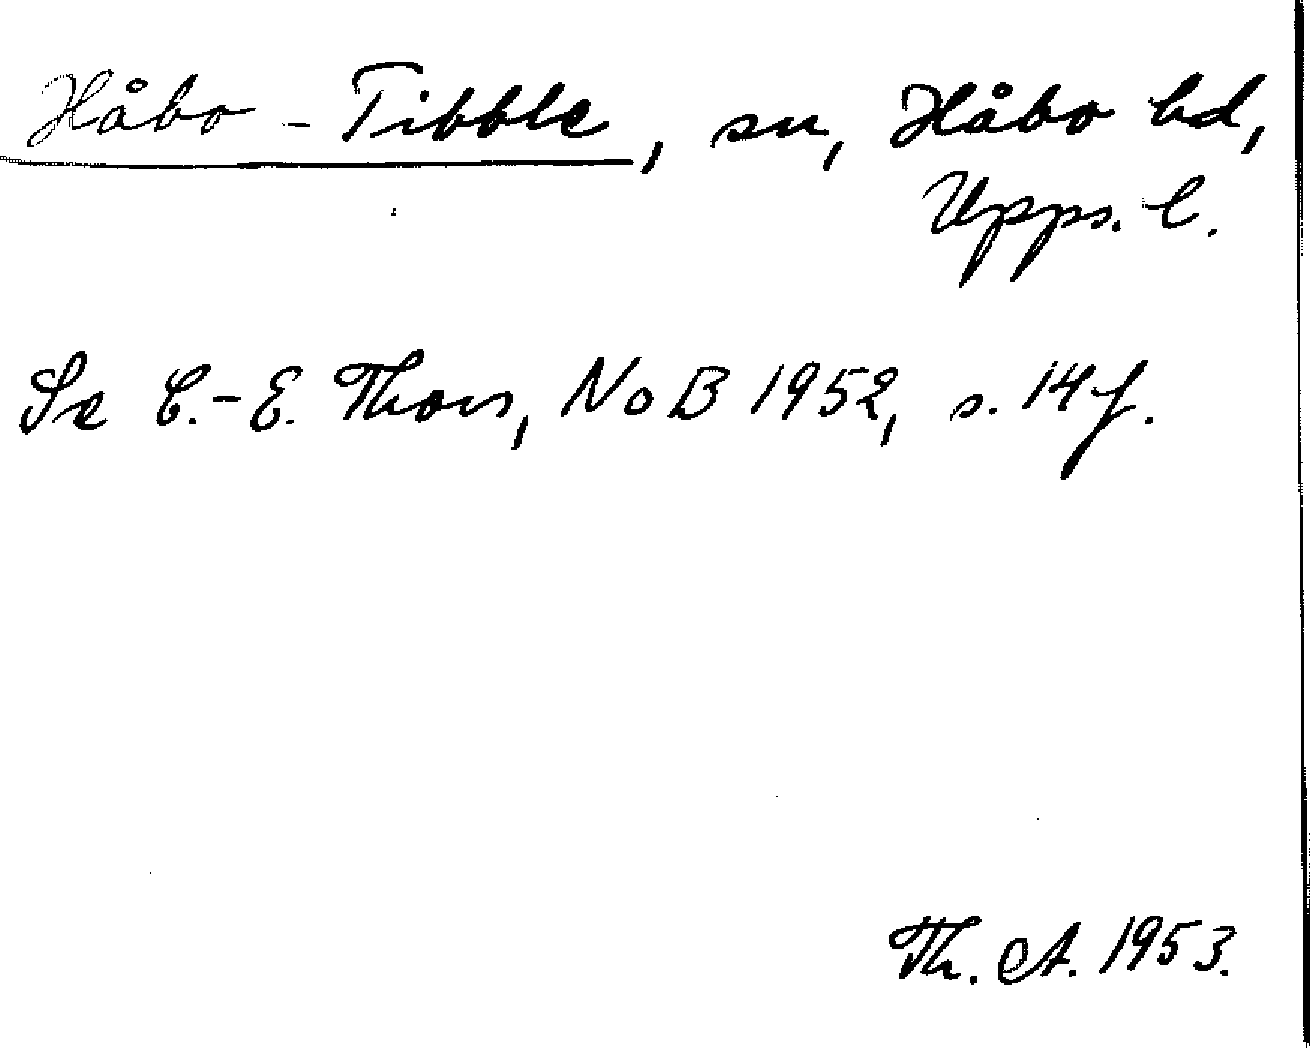 Håbo-Tibble, sn, Håbo hd,
Upps. l.
Se C.-E. Thors, NoB 1952, s. 14 f.
Th. A. 1953.